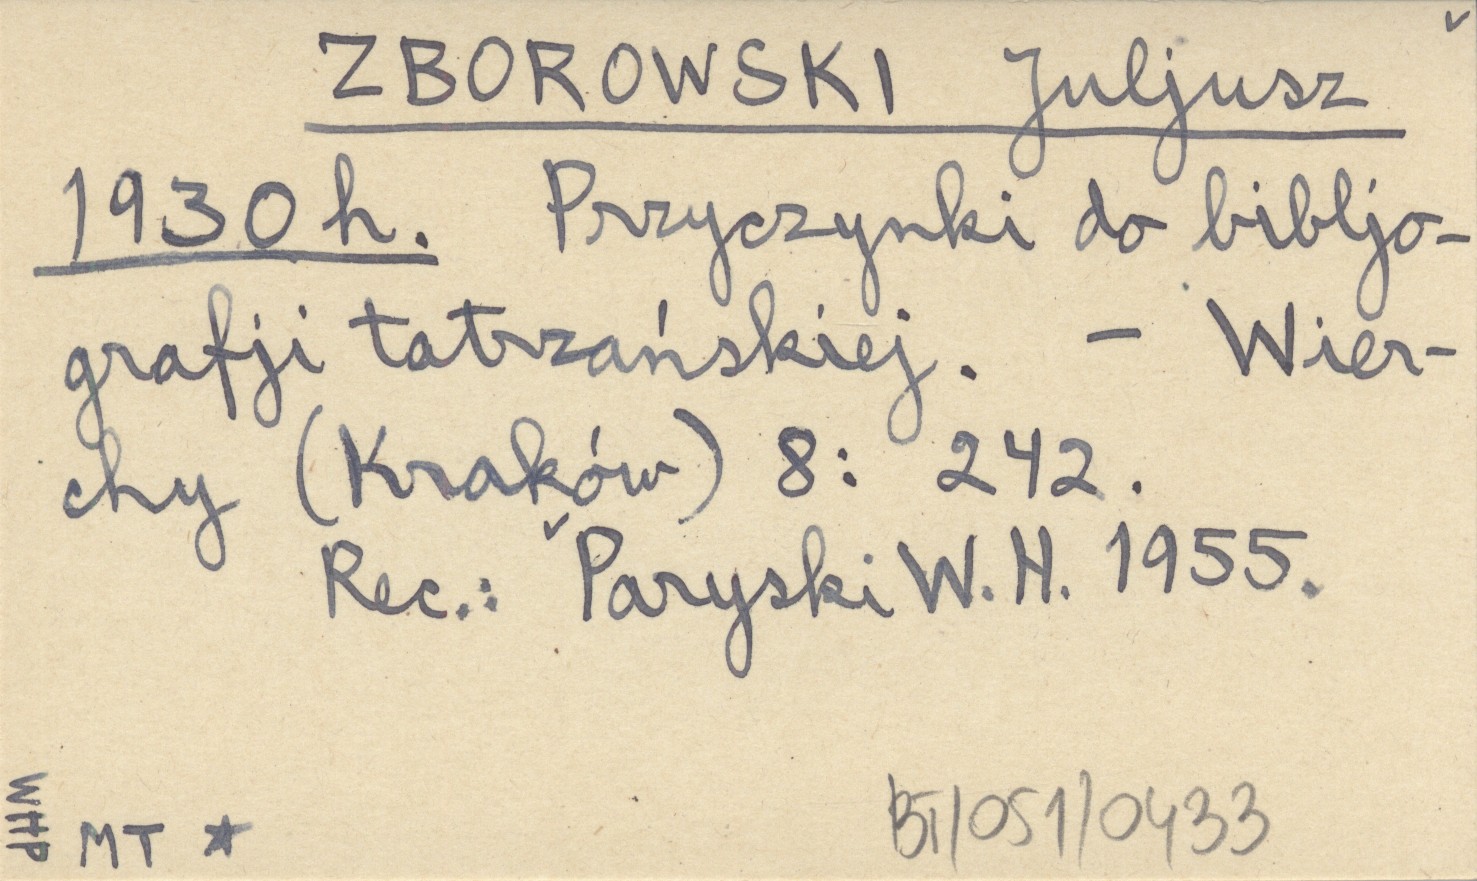 ZBOROWSKI Juljusz
1930 h. Przyczynki do bibljo-
grafji tatrzańskiej. - Wier-
chy (Kraków) 8: 242.
Rec.: Paryski W. H. 1955.
WHP
MT ★
BT/051/0433